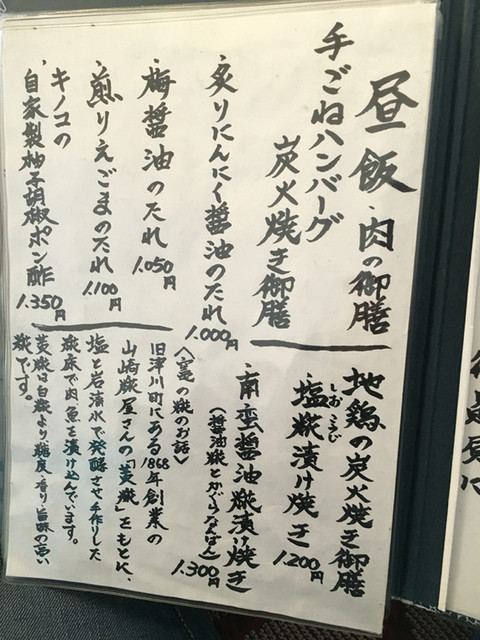 昼飯・肉の御膳
手ごねハンバーグ
炭火焼き御膳
炙りにんにく醤油のたれ 1,000円
梅醤油のたれ 1,050円
煎りえごまのたれ 1,100円
キノコの
自家製柚子胡椒ポン酢 1,350円
地鶏の炭火焼き御膳
しおこうじ
塩糀漬け焼き 1,200円
南蛮醤油糀漬け焼き
(醤油糀とかぐらなんばん) 1,300円
旧津川町にある1868年創業の
山崎糀屋さんの「黄糀」をもとに、
塩と岩清水で発酵させ手作りした
糀床で肉・魚を漬け込んでいます。
黄糀は白糀より糖度・香り・旨味の高い
糀です。